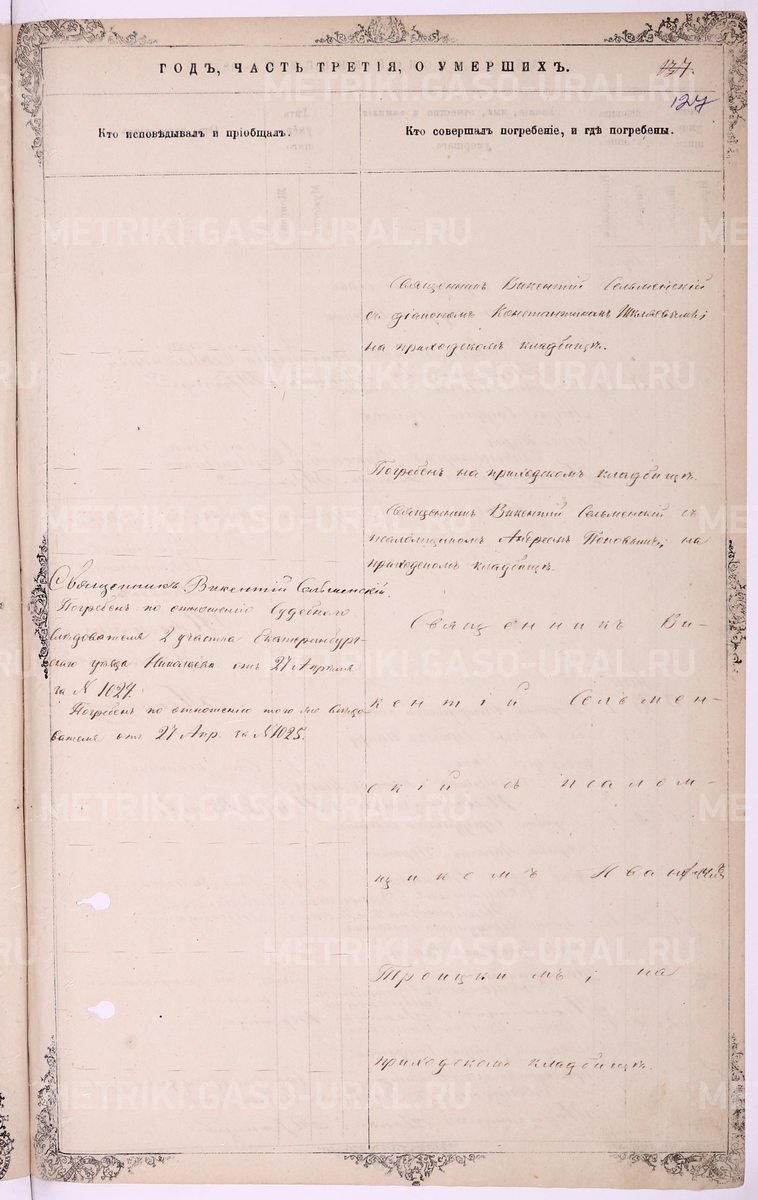 ГОДЪ, ЧАСТЬ ТРЕТІЯ, О УМЕРШИХЪ.
127
Кто исповѣдывалъ и пріобщалъ.
Кто совершалъ погребеніе, и гдѣ погребены.
Священникъ Викентій Сельменскій
съ діакономъ Константиномъ
на приходскомъ кладбищѣ.
Погребенъ на приходскомъ кладбищѣ.
Священникъ Викентій Сельменскій съ
псаломщикомъ Андреемъ Поповымъ; на
приходскомъ кладбищѣ.
Священникъ Викентій Сельменскій.
Погребенъ по отношенію Судебнаго
слѣдователя 2 участка Екатеринбург-
скаго уѣзда Николаева отъ 27 Апрѣля
за № 1024.
Погребенъ по отношенію того же слѣдо-
вателя отъ 27 Апр. за № 1025.
Священникъ Ви-
кентій Сельмен-
скій съ псалом-
щикомъ
Троицкимъ; на
приходскомъ кладбищѣ.
METRIKI.GASO-URAL.RU